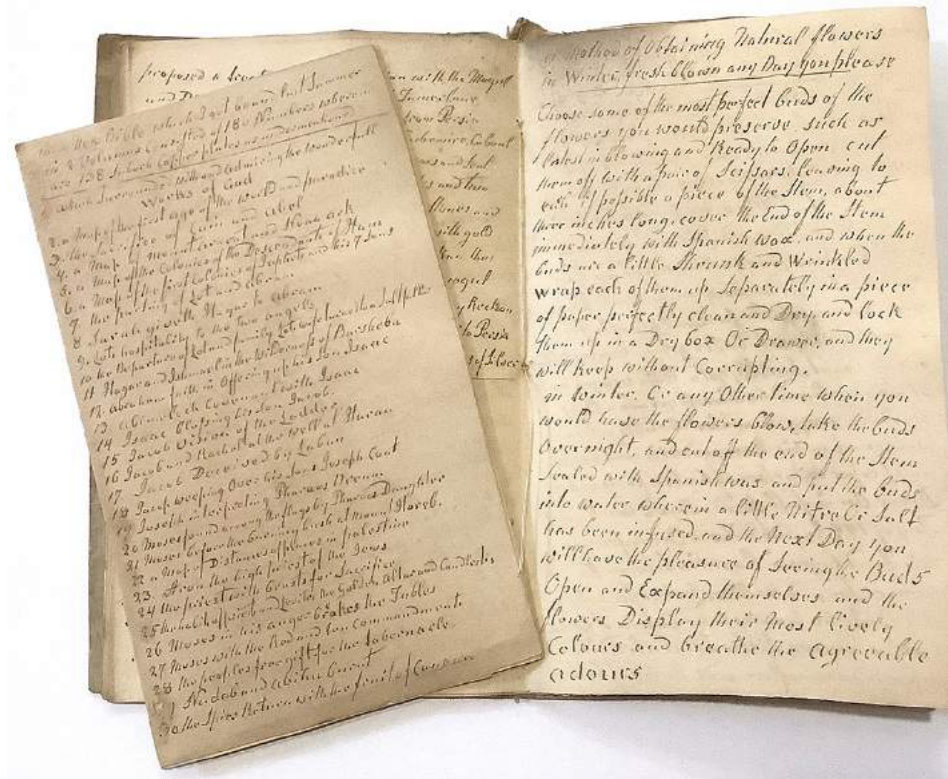 proposed a
and
with the Mogul
Tamerlane
from Persia
and
and two
Stones and
with gold
that
mogul
Reckon
to Persia
of Silver
the New Bible which I got bound last Summer
in 2 Volumes Consisted of 180 Numbers wherein
are 138 Such copper plates as
which Surround without admiring the wonderfull
Works of God
2. a Map of the first age of the World and paradice
3. the Sacrifice of Cain and abel
4. a Map of mount ararat and
5. a Map of the Colonies of the Descendants of Ham
6 a Map of the first Colonies of Japheth and his 7 Sons
7 the parting of Lot and abram
8 Sarah giveth Hagar to abram
9. Lots hospitality to the two angels
10 the Departure of Lot and family Lots wife turned to a Salt piller
11 Hagar and Ishmael in the Wilderness of Baersheba
12. abrahams faith in Offering up his Son Isaac
13 abimelech Covenant with Isaac
14 Isaac Blessing his Son Jacob.
15 Jacob Vision of the Ladder
16 Jacob and Rachel at the well of Haran
17 Jacob Deceived by Laban
18 Jacob weeping Over his Sons Joseph Coat
19 Joseph interpreting Pharaos Dream
20 Moses found among the flags by Pharaos Daughter
21 Moses before the burning bush at Mount Horeb.
22 a Map of Distances of places in palestine
23. Aron the high priest of the Jews
24 the priest with beasts for Sacrifice
25 the and Levites the Golden Altar and Candlesticks
26 Moses in his anger brakes the Tables
27 Moses with the Rod and ten Commandment
28 the peoples free gift for the tabernacle.
Nadab and abihu burnt
30 the Spies Return with the fruit of
a Method of Obtaining Natural flowers
in Winter, fresh blown any Day you please
Choose some of the most perfect buds of the
flowers you would preserve, such as
latest in blowing and Ready to Open cut
them off with a pair of Scissars, leaving to
each if possible a piece of the Stem, about
three inches long, cover the End of the Stem
immediately with Spanish wax, and when the
buds are a little Shrunk and Wrinkled
wrap each of them up Separately in a piece
of paper perfectly clean and Dry, and lock
them up in a Dry box Or Drawer, and they
will keep without Corrupting.
in Winter, Or any Other time when you
would have the flowers blow, take the buds
Overnight, and cut off the end of the Stem
Sealed with Spanish wax and put the buds
into water wherein a little Nitre Or Salt
has been infused, and the Next Day you
will have the pleasure of Seeing the Buds
Open and Expand themselves and the
flowers Display their Most lively
Colours and breathe the agreeable
adours